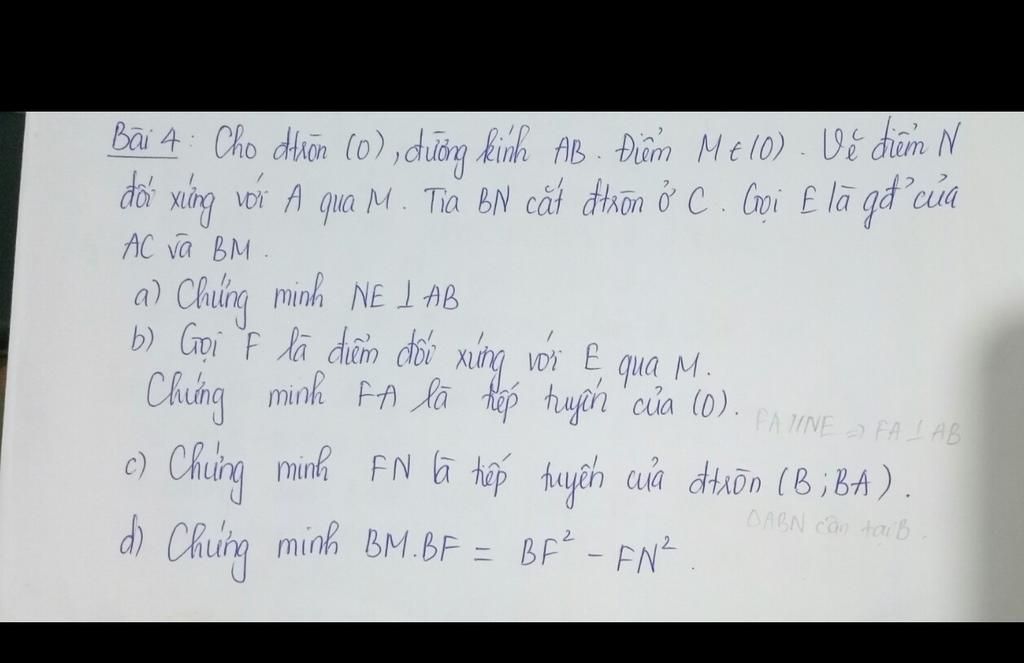 Bài 4: Cho đtròn (O), đường kính AB. Điểm M ∈ (O). Vẽ điểm N
đối xứng với A qua M. Tia BN cắt đtròn ở C. Gọi E là gđ' của
AC và BM.
a) Chứng minh NE ⊥ AB
b) Gọi F là điểm đối xứng với E qua M.
Chứng minh FA là tiếp tuyến của (O).
FA//NE => FA ⊥ AB
c) Chứng minh FN là tiếp tuyến của đtròn (B; BA).
ΔABN cân tại B.
d) Chứng minh BM.BF = BF² - FN².